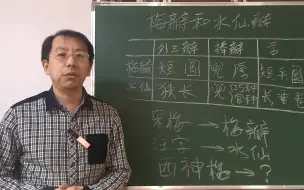 梅瓣和水仙瓣
外三瓣 捧瓣 舌
梅瓣 短圆 兜厚 短平圆
水仙 狭长 兜 长垂卷
宋梅 → 梅瓣
汪字 → 水仙
西神梅 → ?